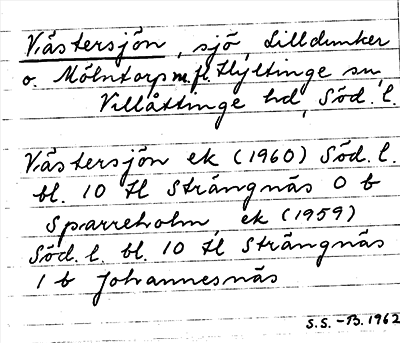 Västersjön, sjö, Lilldunker
o. Mölntorp m.fl. Hyltinge sn,
Villåttinge hd, Söd. l.
Västersjön ek (1960) Söd. l.
bl. 10 H Strängnäs 0 b
Sparreholm ek (1959)
Söd. l. bl. 10 H Strängnäs
1 b Johannesnäs
S.S. -B. 1962